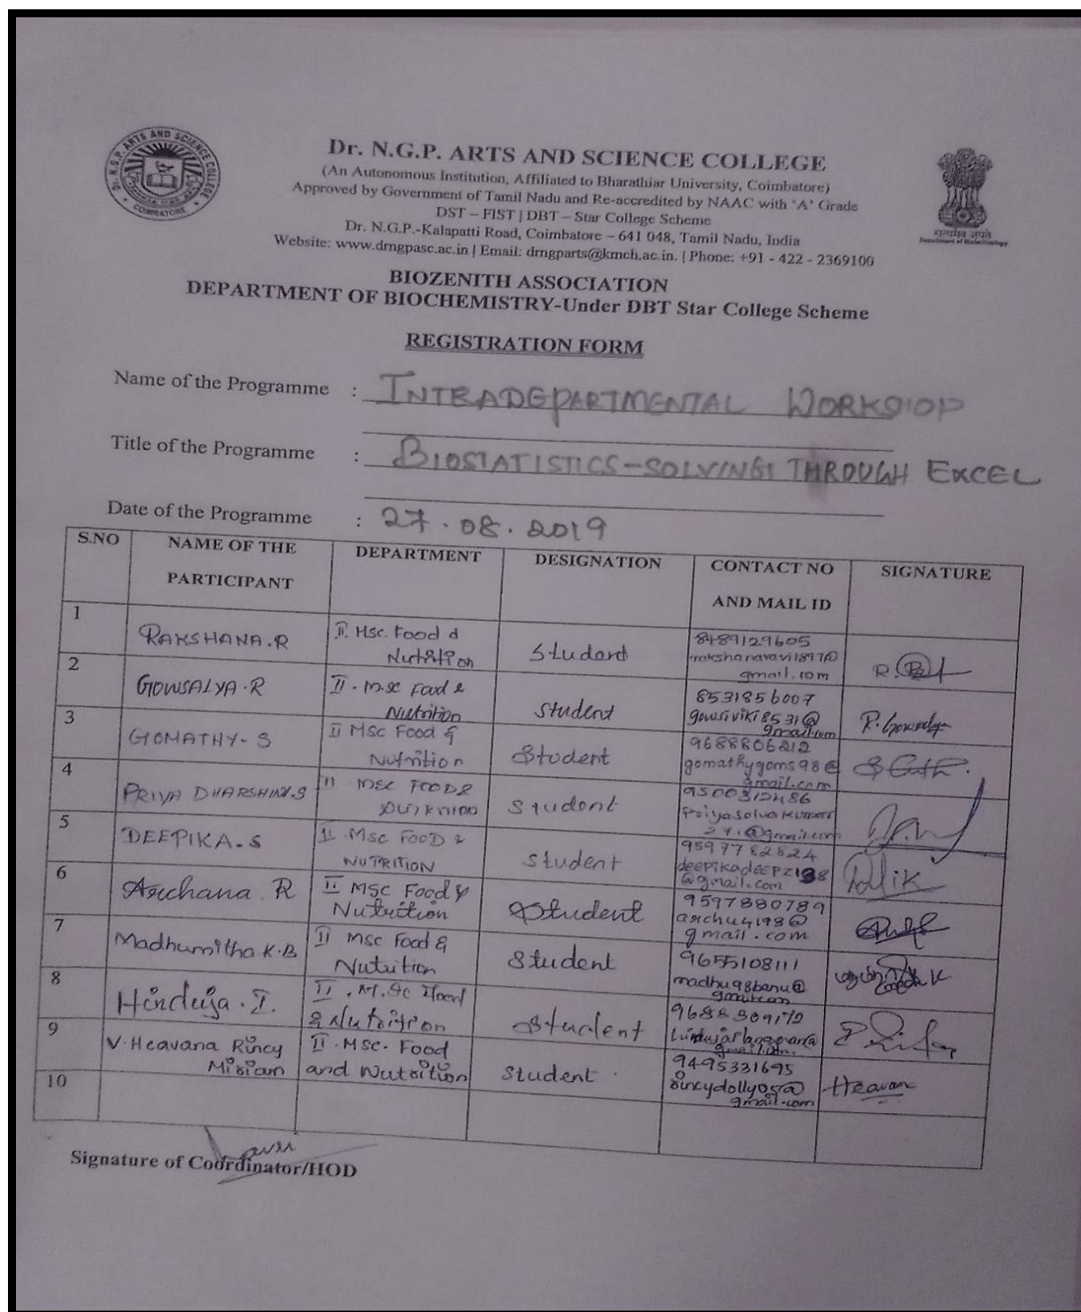 Dr. N.G.P. ARTS AND SCIENCE COLLEGE
COIMBATORE
Dr. N.G.P. ARTS AND SCIENCE COLLEGE
(An Autonomous Institution, Affiliated to Bharathiar University, Coimbatore)
Approved by Government of Tamil Nadu and Re-accredited by NAAC with 'A' Grade
DST – FIST | DBT – Star College Scheme
Dr. N.G.P.-Kalapatti Road, Coimbatore – 641 048, Tamil Nadu, India
Website: www.drngpasc.ac.in | Email: drngparts@kmch.ac.in. | Phone: +91 - 422 - 2369100
सत्यमेव जयते
Department of Biotechnology
BIOZENITH ASSOCIATION
DEPARTMENT OF BIOCHEMISTRY-Under DBT Star College Scheme
REGISTRATION FORM
Name of the Programme : INTRADEPARTMENTAL WORKSHOP
Title of the Programme : BIOSTATISTICS-SOLVING THROUGH EXCEL
Date of the Programme : 27.08.2019
S.NO NAME OF THE PARTICIPANT DEPARTMENT DESIGNATION CONTACT NO AND MAIL ID SIGNATURE
1 RAKSHANA.R II. Msc. Food & Nutrition Student 8489129605 rakshanaravi1897@gmail.com
2 GOWSALYA.R II - M.sc Food & Nutrition Student 8531856007 gowsiviki8531@gmail.com
3 GOMATHY-S II MSc Food & Nutrition Student 9688806212 gomathygoms98@gmail.com
4 PRIYA DHARSHINI.S II MSC FOOD & Student 9500312486
5 DEEPIKA.S II .Msc FOOD & NUTRITION Student 9597782824 @gmail.com
6 Archana.R II MSC Food & Nutrition Student 9597880789 archu4198@gmail.com
7 Madhumitha K.B II Msc Food & Nutrition Student 9655108111 madhu98banu@gmail.com
8 Hinduja.I. II .M.Sc Food & Nutrition Student
9 V.Heavana Rincy Mirian II.MSC. Food and Nutrition Student 9495331695 Heavan
10
Signature of Coordinator/HOD